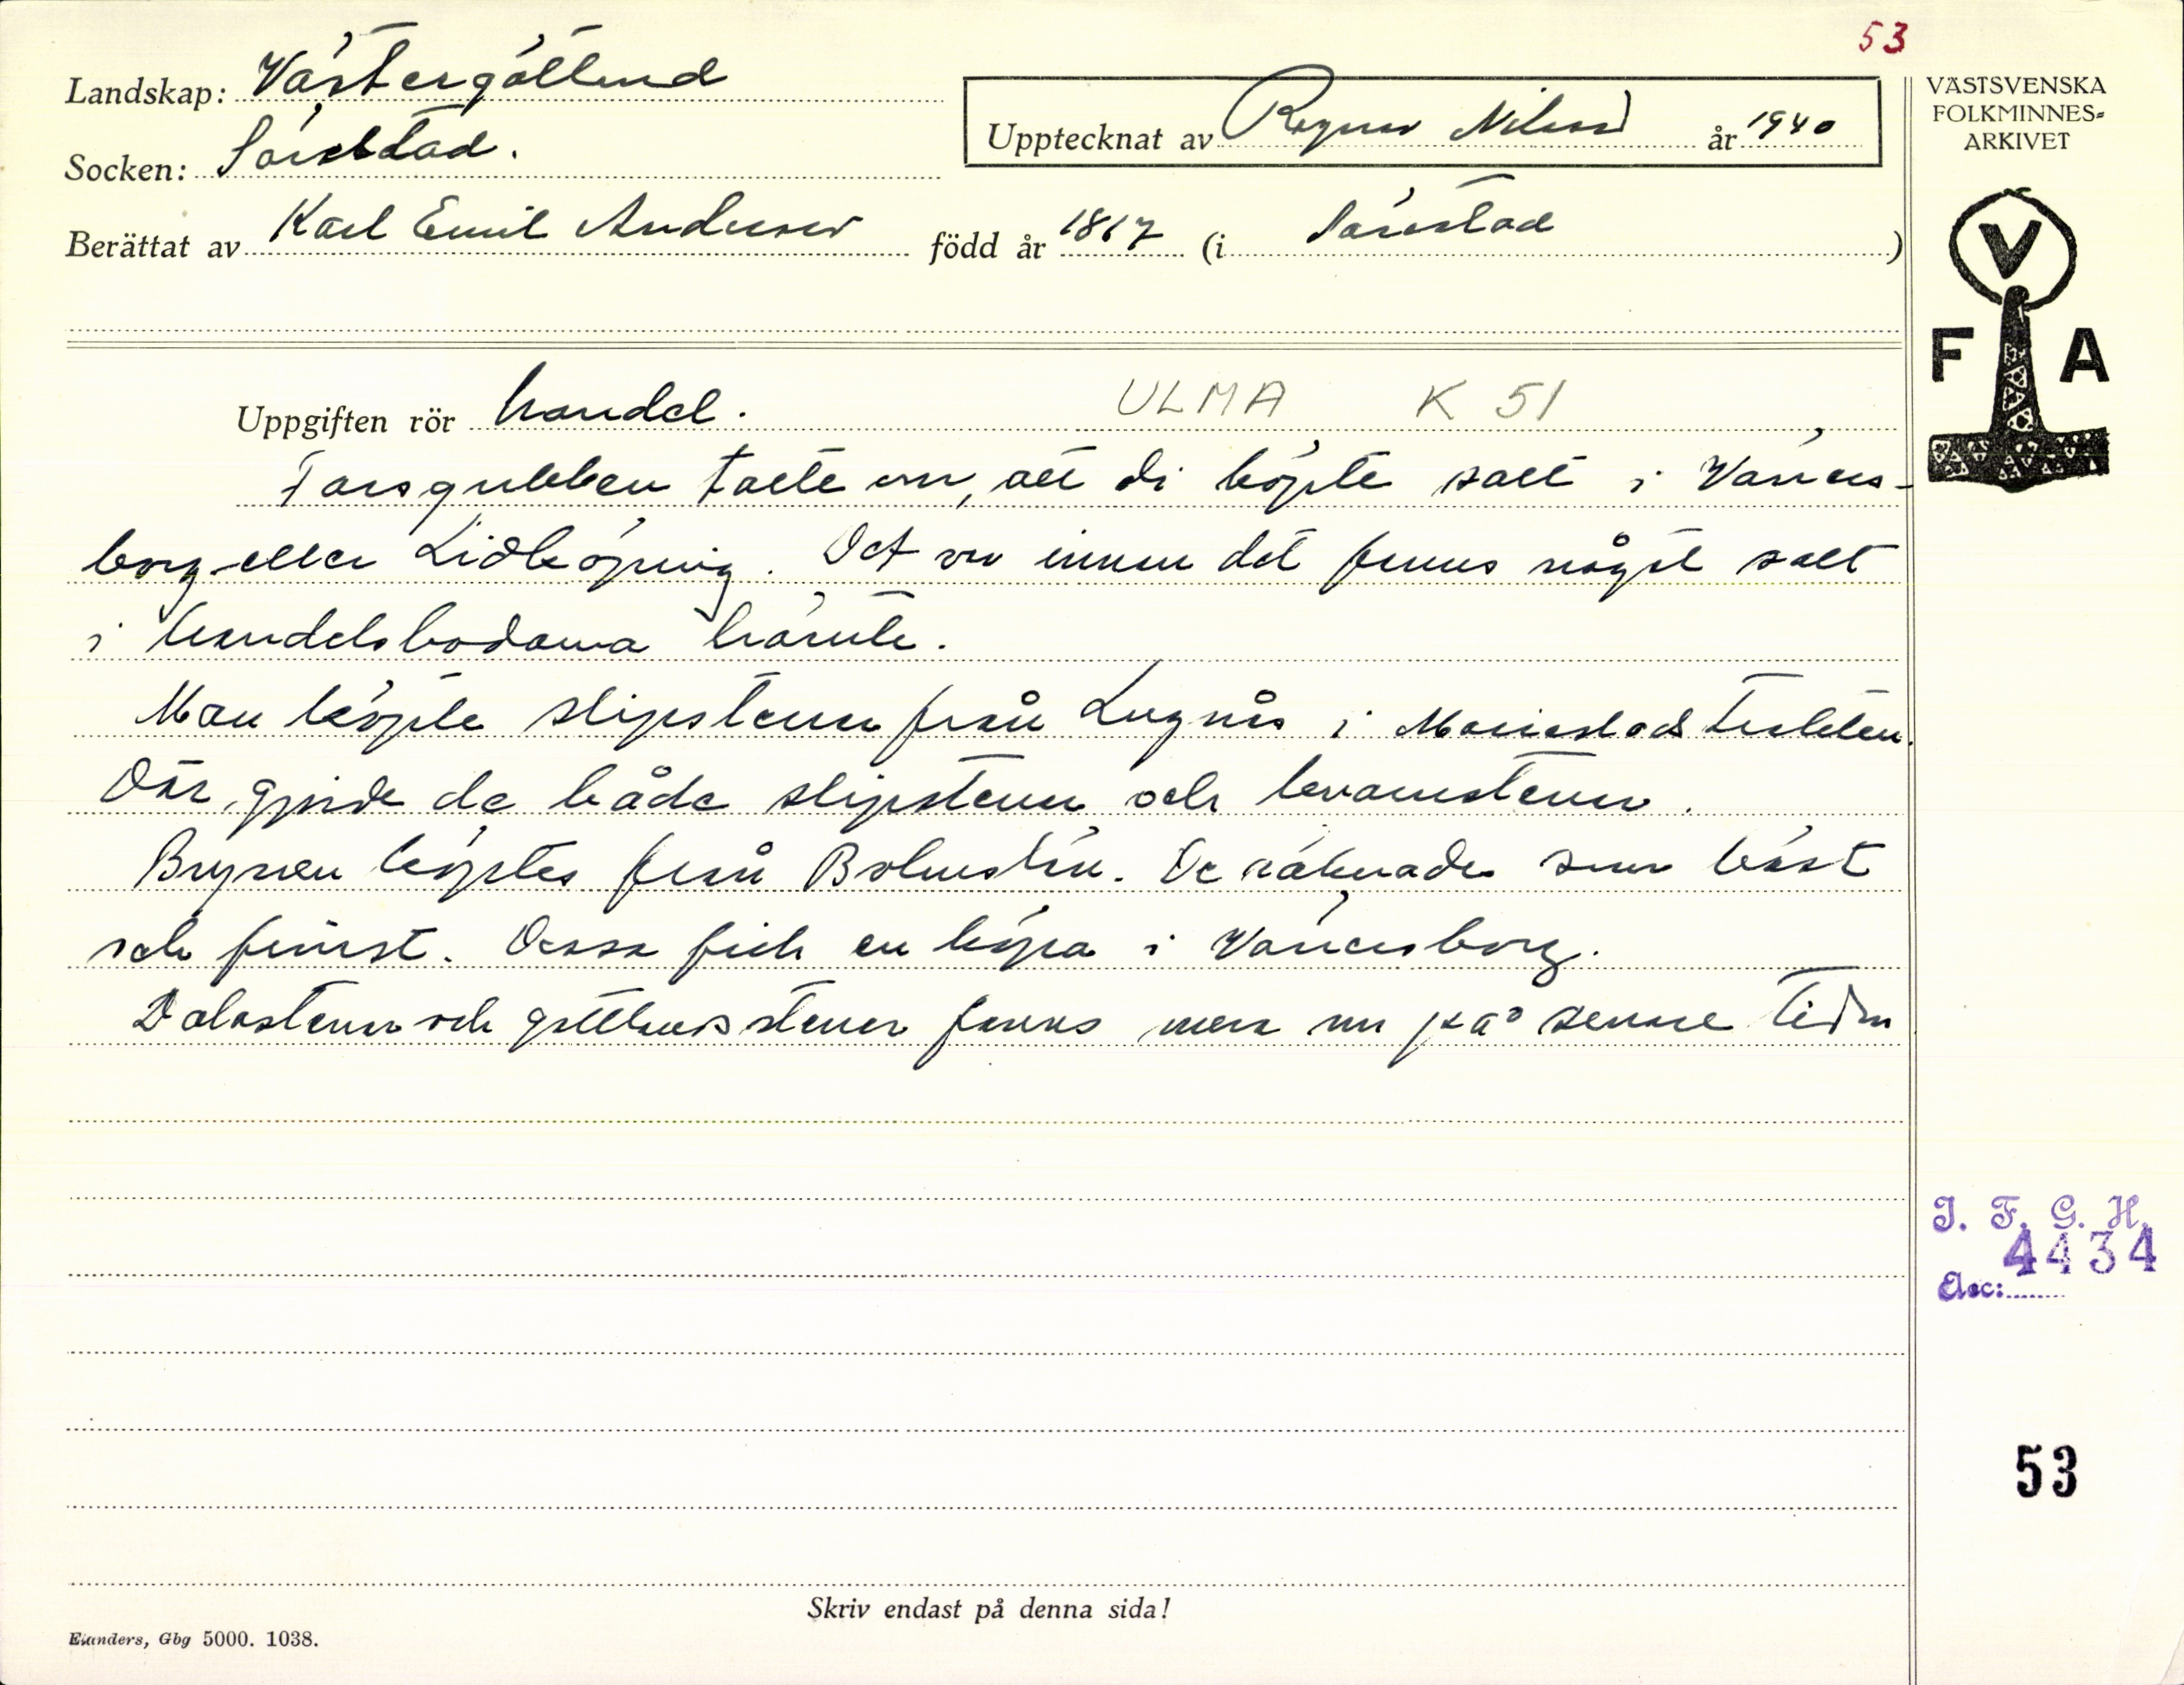 53
Landskap: Västergötland
Socken: Särestad.
Upptecknat av Ragnar Nilsson år 1940
Berättat av Karl Emil Andersson född år 1867 (i Särestad)
VÄSTSVENSKA
FOLKMINNES=
ARKIVET
V
F A
Uppgiften rör handel. ULMA K 51
Farsgubben talte om, att di köpte salt i Väners-
borg eller Lidköping. Det var innan det fanns något salt
i handelsbodarna härute.
Man köpte slipstenar från Lugnås i Mariestadstrakten.
Där gjorde de både slipstenar och kvarnstenar.
Brynen köptes från Bohuslän. De räknades som bäst
och finast. Dessa fick en köpa i Vänersborg.
Dalastenar och gottlandsstenar fanns mera nu på senare tiden
J. F. G. H.
4434
Acc:
53
Skriv endast på denna sida!
Elanders, Gbg 5000. 1038.